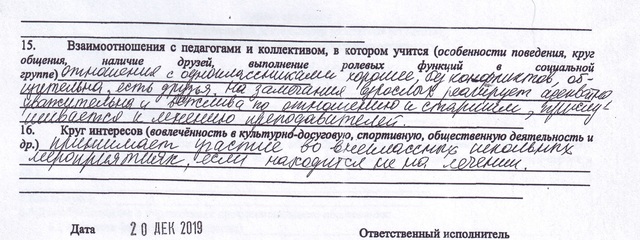 15. Взаимоотношения с педагогами и коллективом, в котором учится (особенности поведения, круг
общения, наличие друзей, выполнение ролевых функций в социальной
группе) отношения с одноклассниками хорошие, без конфликтов, об-
щительна, есть друзья. На замечания взрослых реагирует адекватно
уважительна и вежлива по отношению к старшим, прислу-
шивается к мнению преподавателей.
16. Круг интересов (вовлечённость в культурно-досуговую, спортивную, общественную деятельность и
др.) принимает участие во внеклассных школьных
мероприятиях, если находится не на лечении.
Дата 20 ДЕК 2019 Ответственный исполнитель